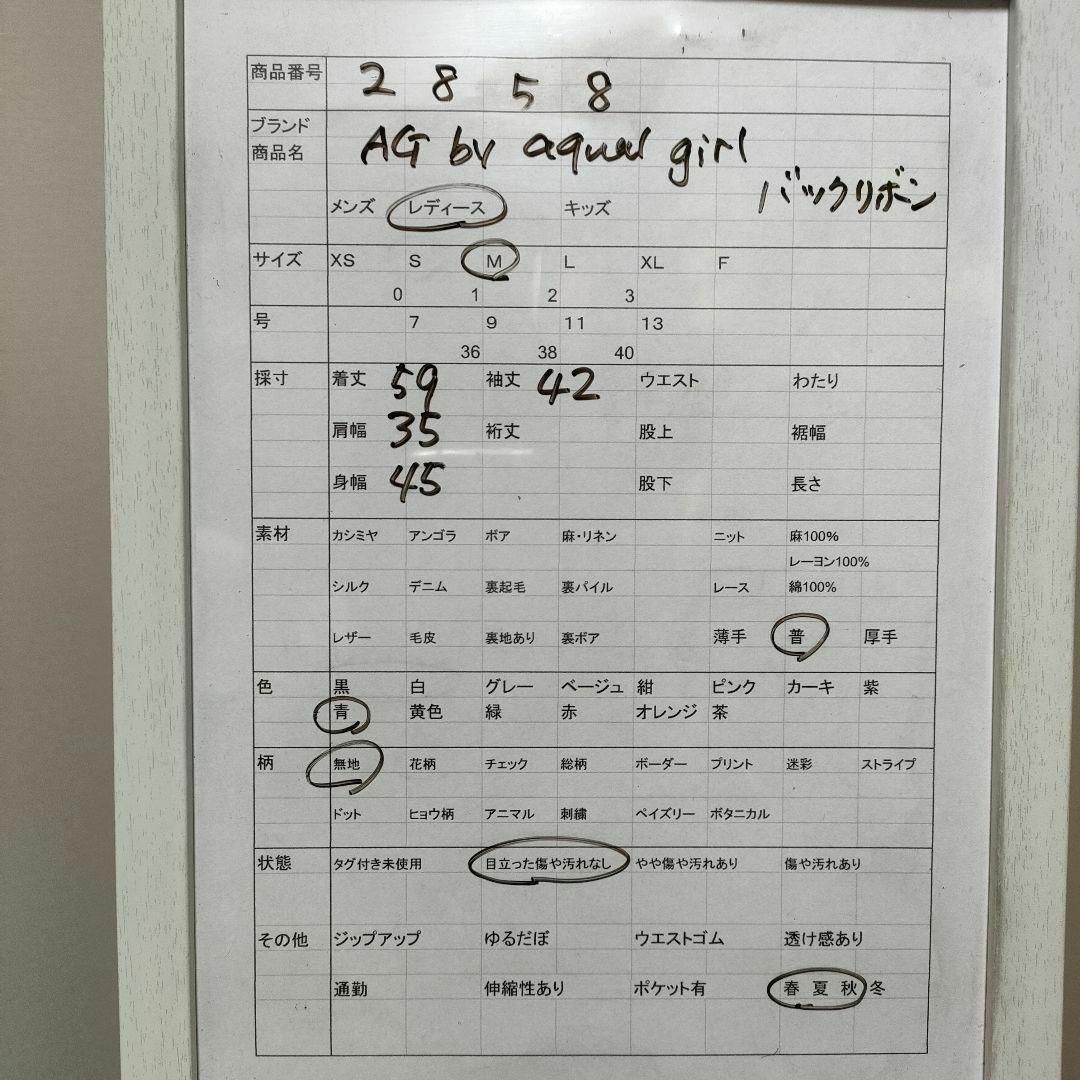 商品番号 2 8 5 8
ブランド
商品名 AG by aqual girl
バックリボン
メンズ レディース キッズ
サイズ XS S M L XL F
0 1 2 3
号 7 9 11 13
36 38 40
採寸 着丈 59 袖丈 42 ウエスト わたり
肩幅 35 裄丈 股上 裾幅
身幅 45 股下 長さ
素材 カシミヤ アンゴラ ボア 麻・リネン ニット 麻100%
レーヨン100%
シルク デニム 裏起毛 裏パイル レース 綿100%
レザー 毛皮 裏地あり 裏ボア 薄手 普 厚手
色 黒 白 グレー ベージュ 紺 ピンク カーキ 紫
青 黄色 緑 赤 オレンジ 茶
柄 無地 花柄 チェック 総柄 ボーダー プリント 迷彩 ストライプ
ドット ヒョウ柄 アニマル 刺繍 ペイズリー ボタニカル
状態 タグ付き未使用 目立った傷や汚れなし やや傷や汚れあり 傷や汚れあり
その他 ジップアップ ゆるだぼ ウエストゴム 透け感あり
通勤 伸縮性あり ポケット有 春 夏 秋 冬